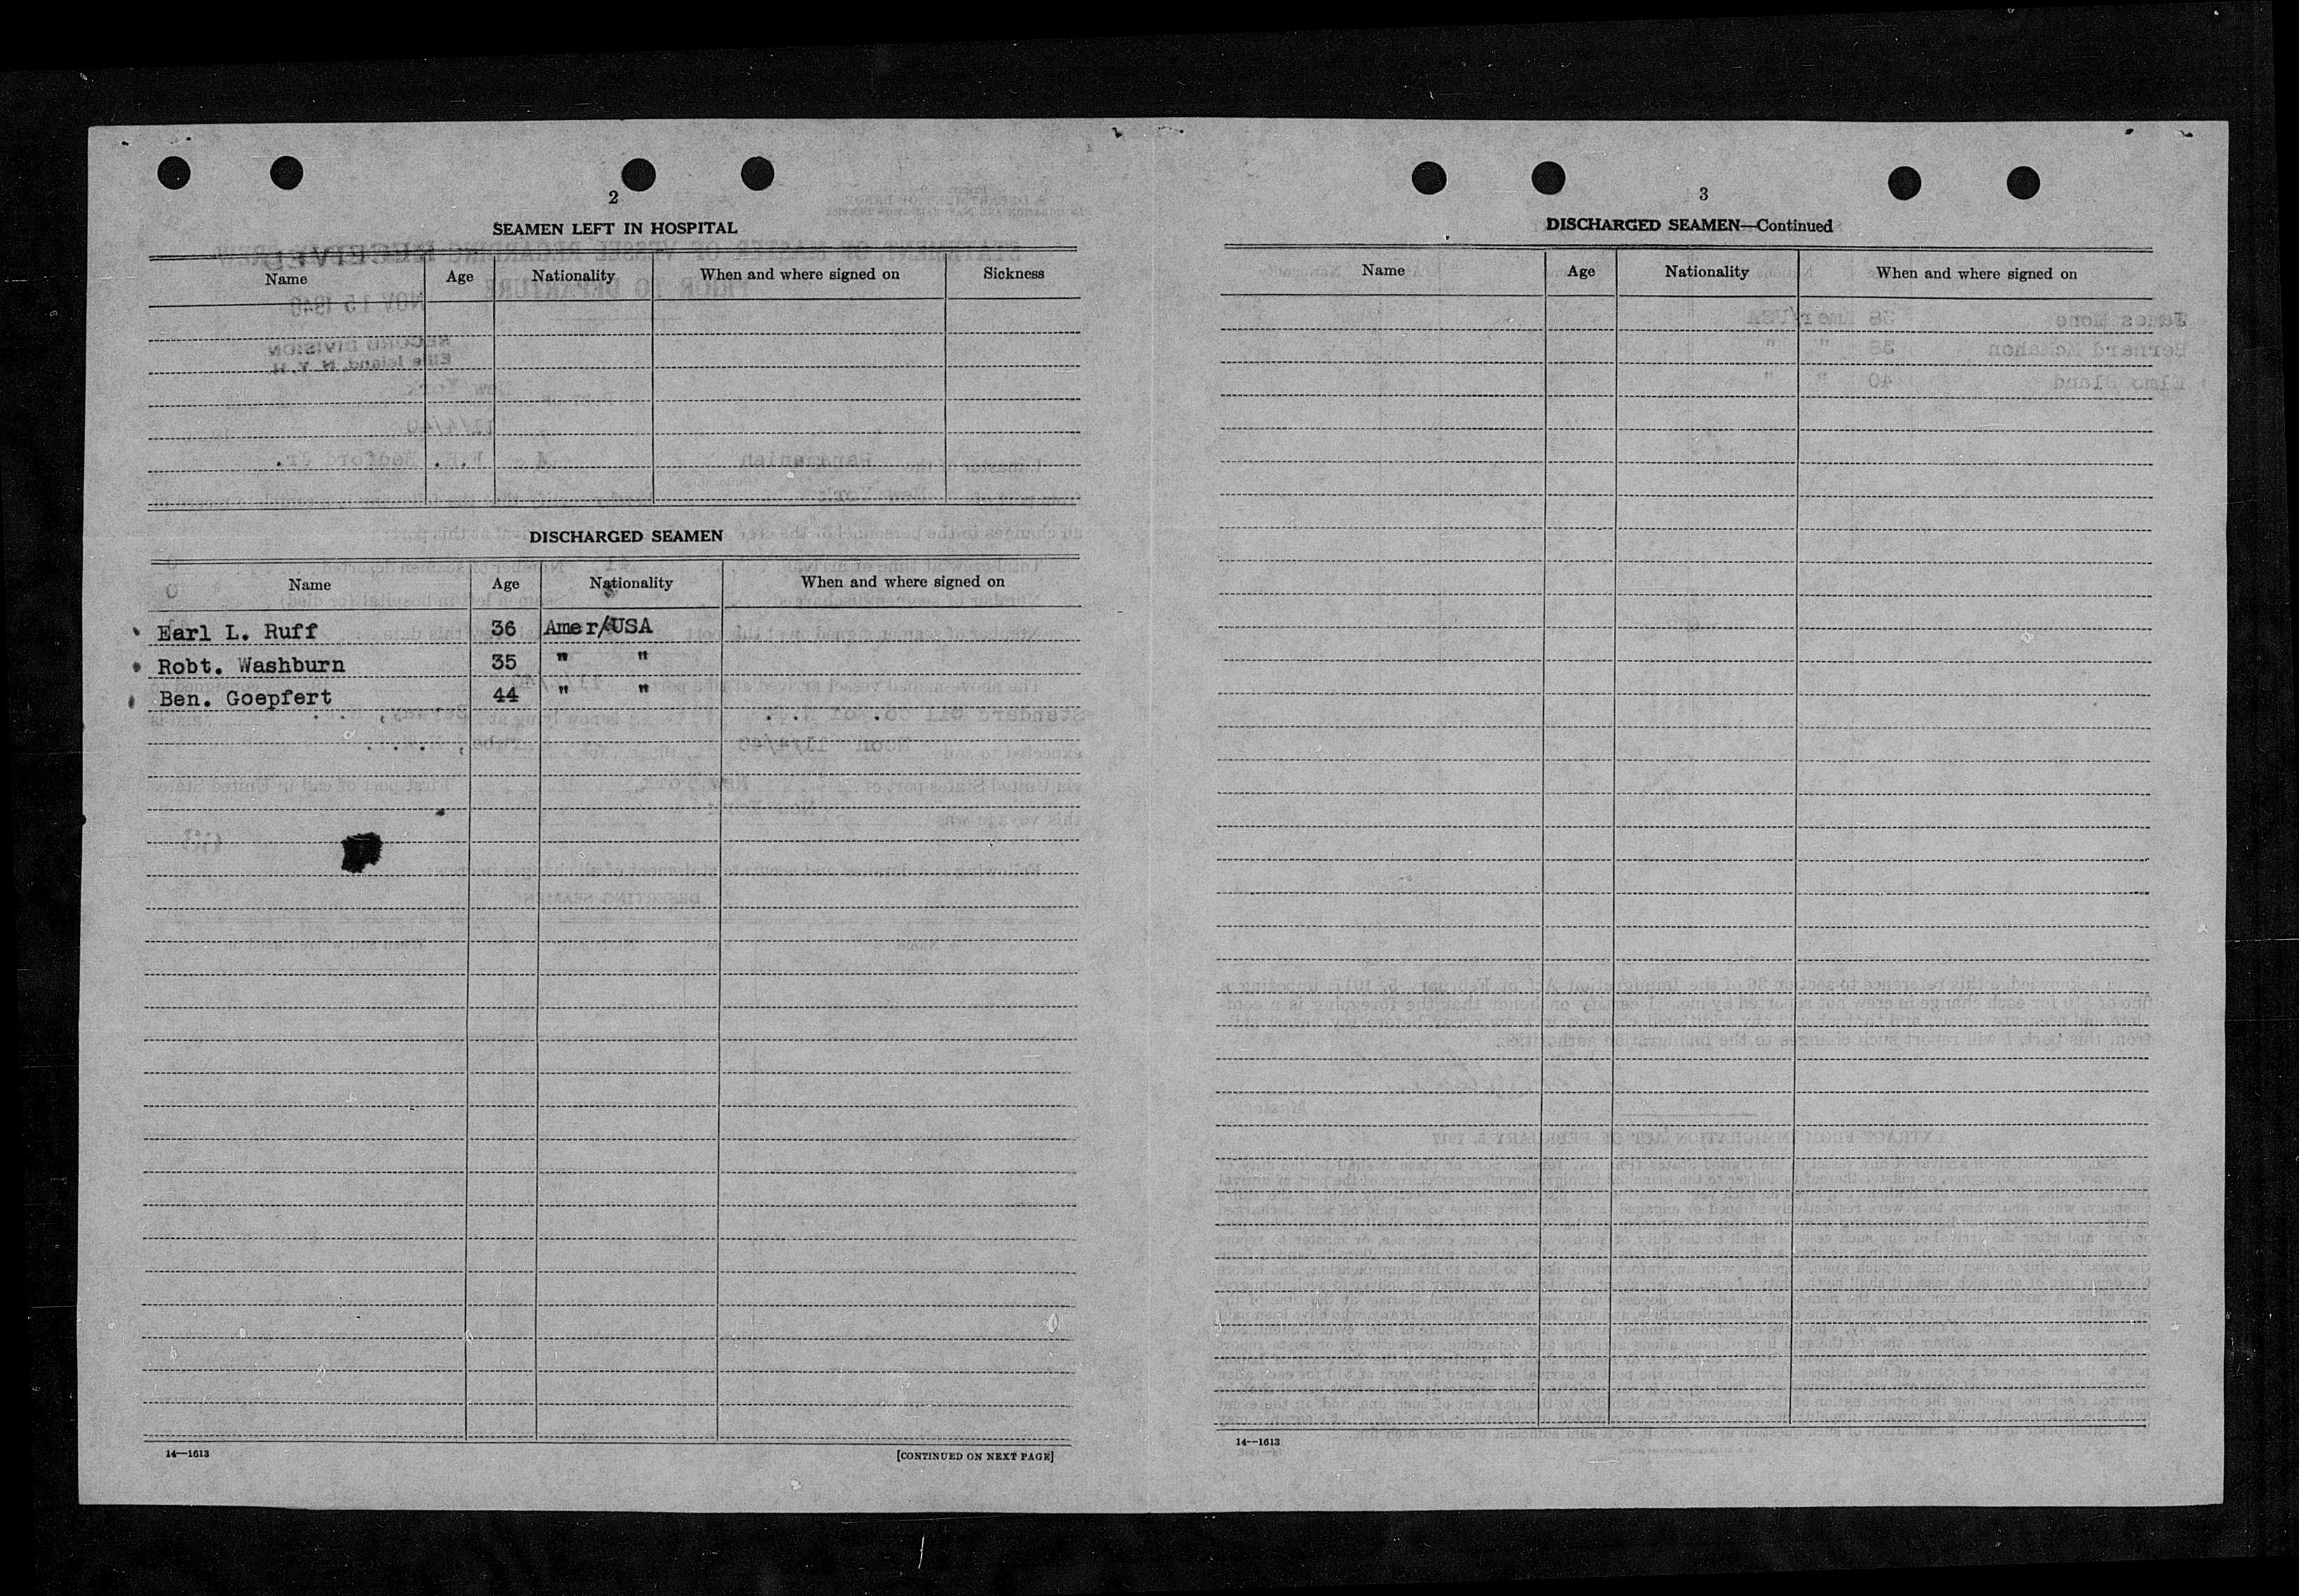 2
SEAMEN LEFT IN HOSPITAL
Name Age Nationality When and where signed on Sickness
DISCHARGED SEAMEN
Name Age Nationality When and where signed on
Earl L. Ruff 36 Amer/USA
Robt. Washburn 35 " "
Ben. Goepfert 44 " "
14—1613 [CONTINUED ON NEXT PAGE]
3
DISCHARGED SEAMEN—Continued
Name Age Nationality When and where signed on
14—1613